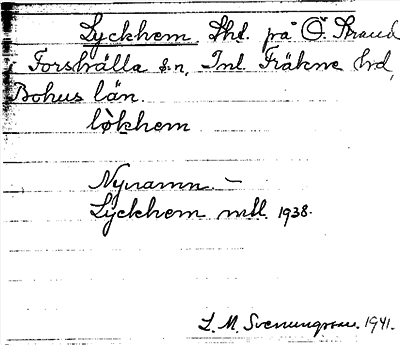 Lyckhem Lht. på Ö. Strand
i Forshälla sn, Inl. Fräkne hd,
Bohus län.
løkhem
Nynamn –
Lyckhem mtl. 1938.
L. M. Svenungsson. 1941.